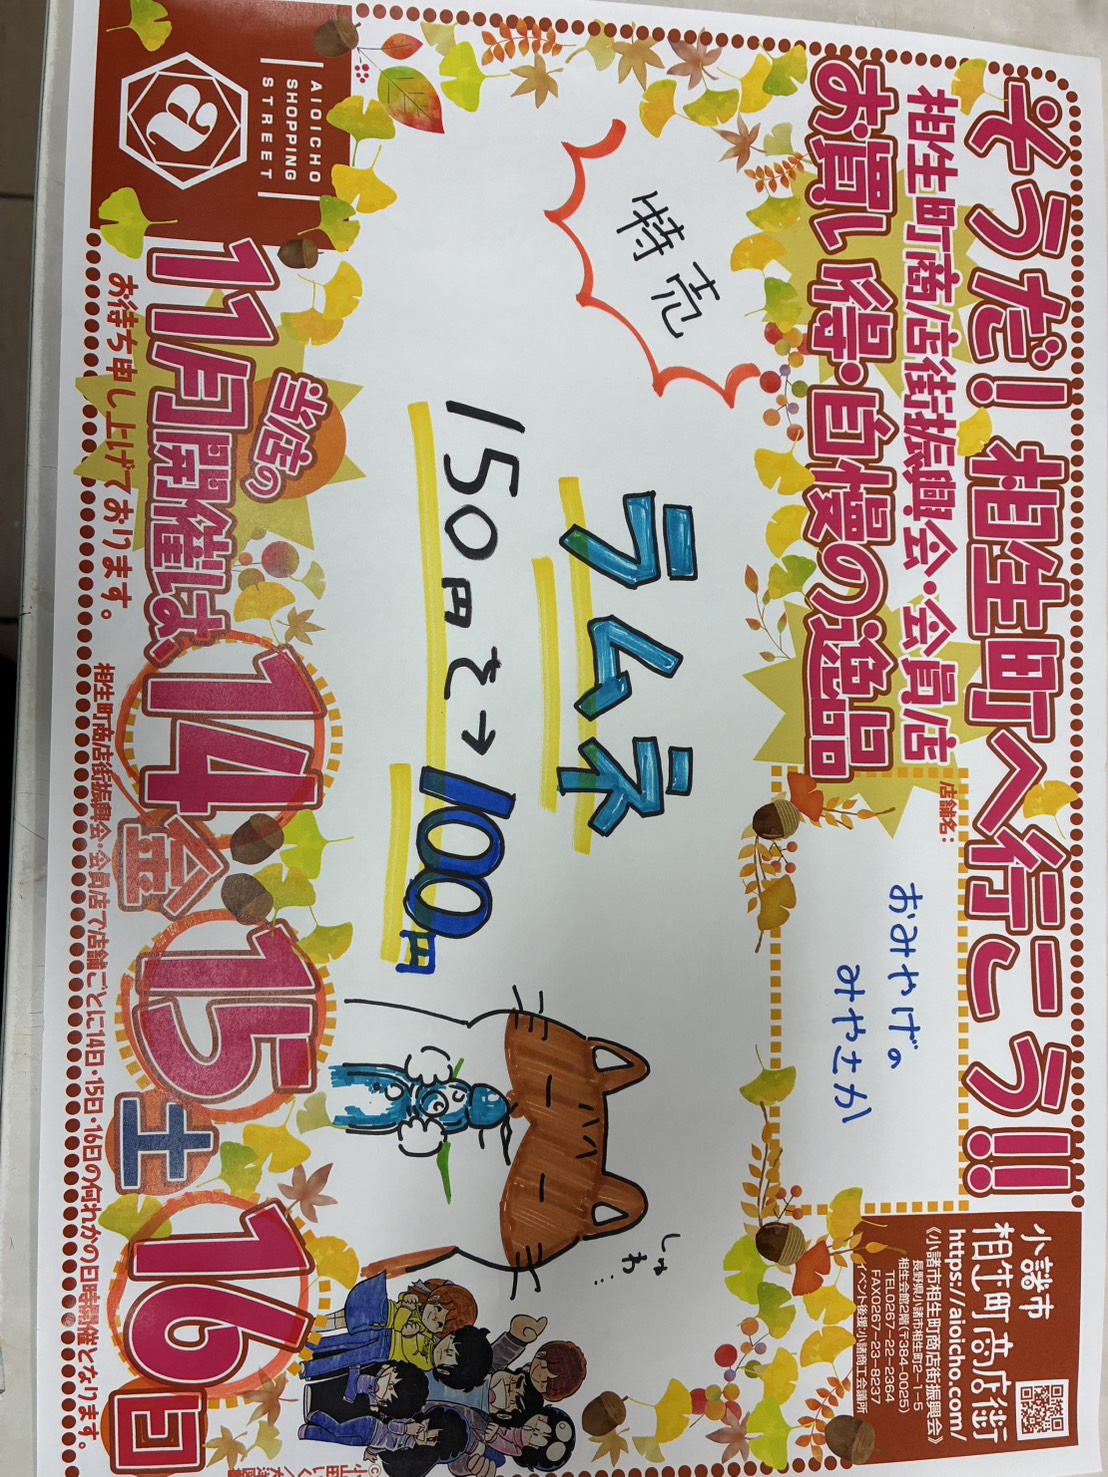 そうだ!相生町へ行こう!!
相生町商店街振興会・会員店
お買い得・自慢の逸品
店舗名:
おみやげの
みやさか
小諸市
相生町商店街
https://aioicho.com/
《小諸市相生町商店街振興会》
長野県小諸市相生町2-1-5
相生会館2階(〒384-0025)
TEL0267-22-2364
FAX0267-23-8237
イベント後援:小諸商工会議所
特売
ラムネ
150円を→100円
しゅわ…
AIOICHO
SHOPPING
STREET
当店の
11月開催は、14金 15土 16日
お待ち申し上げております。
相生町商店街振興会・会員店で店舗ごとに14日・15日・16日の何れかの日時開催となります。